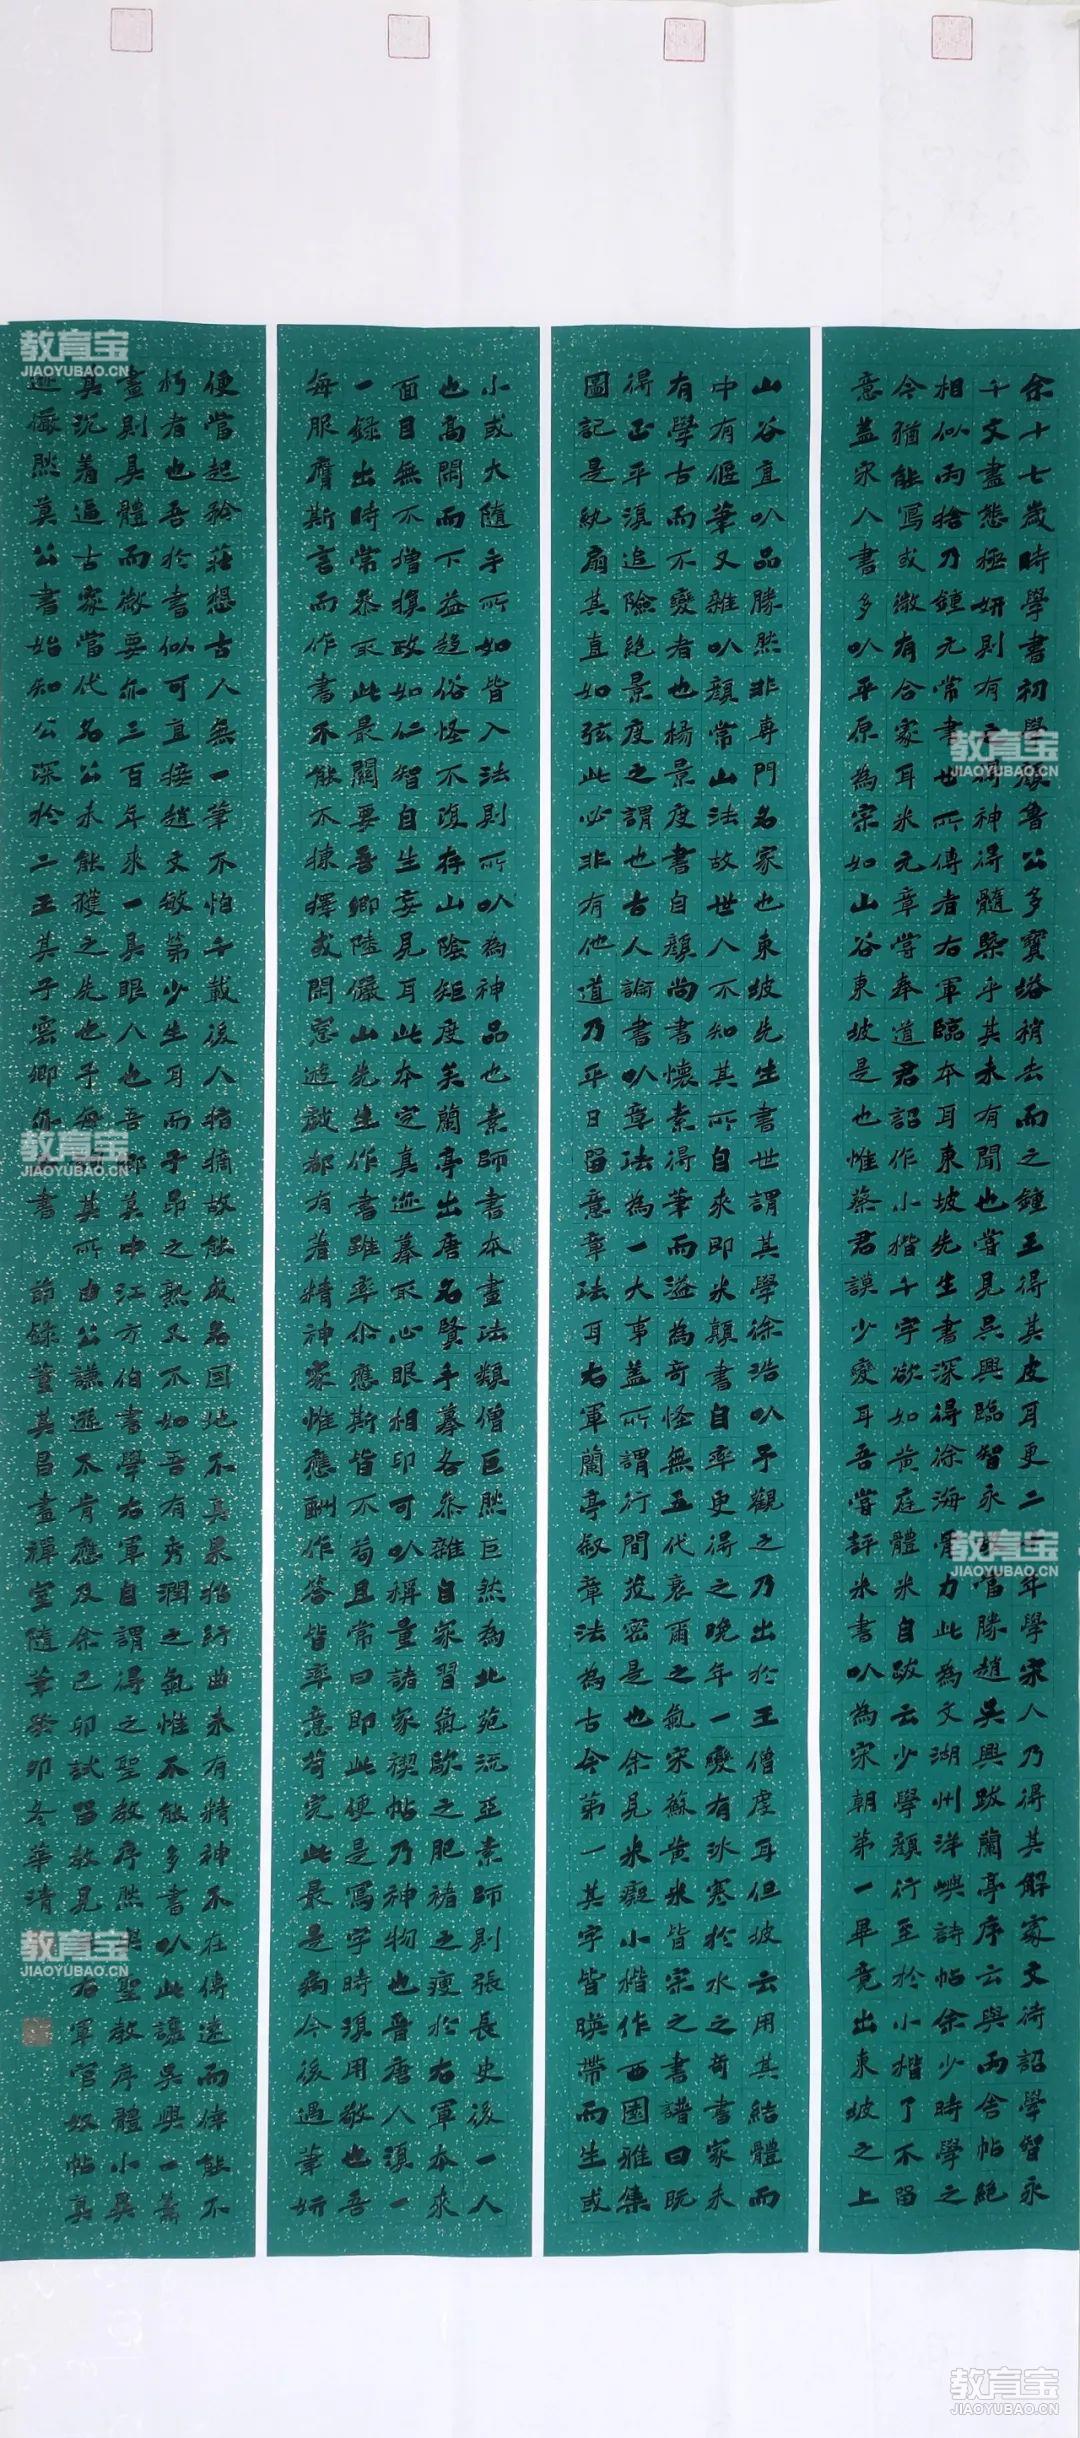 余十七歲時學書初學顏魯公多寶塔稍去而之鍾王得其皮耳更二十年學宋人乃得其解處文待詔學智永
千文盡態極妍則有之得神得髓槩乎其未有聞也嘗見吳興臨智永當勝趙吳興跋蘭亭序云與丙舍帖絕
相似丙捨乃鍾元常書世所傳者右軍臨本耳東坡先生書深得徐海骨力此為文湖州洋嶼詩帖余少時學之
今猶能寫或微有合處耳米元章嘗奉道君詔作小楷千字欲如黃庭體米自跋云少學顏行至於小楷了不留
意蓋宋人書多以平原為宗如山谷東坡是也惟蔡君謨少變耳吾嘗評米書以為宋朝第一畢竟出東坡之上
山谷直以品勝然非專門名家也東坡先生書世謂其學徐浩以予觀之乃出於王僧虔耳但坡云用其結體而
中有偃筆又雜以顏常山法故世人不知其所自來即米顛書自率更得之晚年一變有冰寒於水之奇書家未
有學古而不變者也楊景度書自顏尚書懷素得筆而溢為奇怪無五代衰爾之氣宋蘇黃米皆宗之書譜曰既
得正平須追險絕景度之謂也古人論書以章法為一大事蓋所謂行間茂密是也余見米癡小楷作西園雅集
圖記是紈扇其直如弦此必非有他道乃平日留意章法耳右軍蘭亭敘章法為古今第一其字皆暎帶而生或
小或大隨手所如皆入法則所以為神品也素師書本畫法類僧巨然巨然為北苑流亞素師則張長史後一人
也高閑而下益趨俗怪不復存山陰矩度矣蘭亭出唐名賢手摹各參雜自家習氣歐之肥褚之瘦於右軍本來
面目無不增損政如仁智自生妄見耳此本定真迹摹取心眼相印可以稱量諸家禊帖乃神物也晉唐人須一
一錄出時常參取此最關要吾鄉陸儼山先生作書雖率尒應斯皆不苟且常曰即此便是寫字時須用敬也吾
每服膺斯言而作書不能不揀擇或閑窓遊戲都有著精神處惟應酬作答皆率意苟完此最是病今後遇筆妍
便當起矜莊想古人無一筆不怕千載後人指摘故能成名因地不真果招紆曲未有精神不在傳遠而倖能不
朽者也吾於書似可直接趙文敏第少生耳而子昂之熟又不如吾有秀潤之氣惟不能多書以此讓吳興一籌
畫則具體而微要亦三百年來一具眼人也吾鄉莫中江方伯書學右軍自謂得之聖教序然與聖教序體小異
其沉着逼古處當代名公未能獲之先也予每其所由公謙遜不肯應及余己卯試留教見右軍官奴帖真
迹儼然莫公書始知公深於二王其子雲卿亦書 節錄董其昌畫禪室隨筆癸卯冬華清
教育宝
JIAOYUBAO.CN
教育宝
JIAOYUBAO.CN
教育宝
JIAOYUBAO.CN
教育宝
JIAOYUBAO.CN
教育宝
JIAOYUBAO.CN
教育宝
JIAOYUBAO.CN